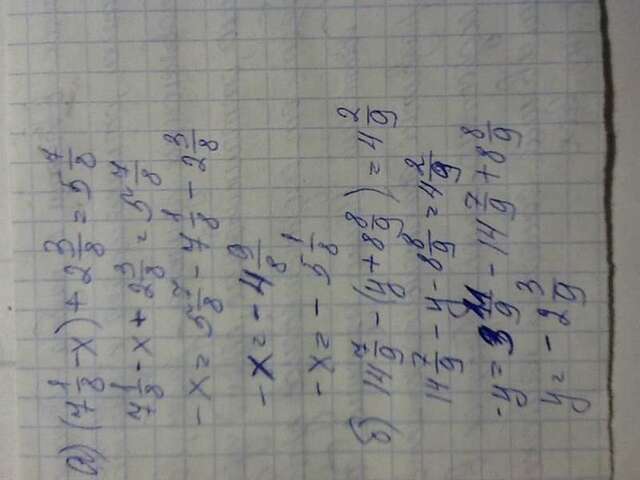 а) (7 1/8 - x) + 2 3/8 = 5 7/8
7 1/8 - x + 2 3/8 = 5 7/8
- x = 5 7/8 - 7 1/8 - 2 3/8
- x = - 4 9/8
- x = - 5 1/8
б) 14 7/9 - (y + 8 8/9) = 4 2/9
14 7/9 - y - 8 8/9 = 4 2/9
- y = 3 11/9 - 14 7/9 + 8 8/9
y = - 2 3/9